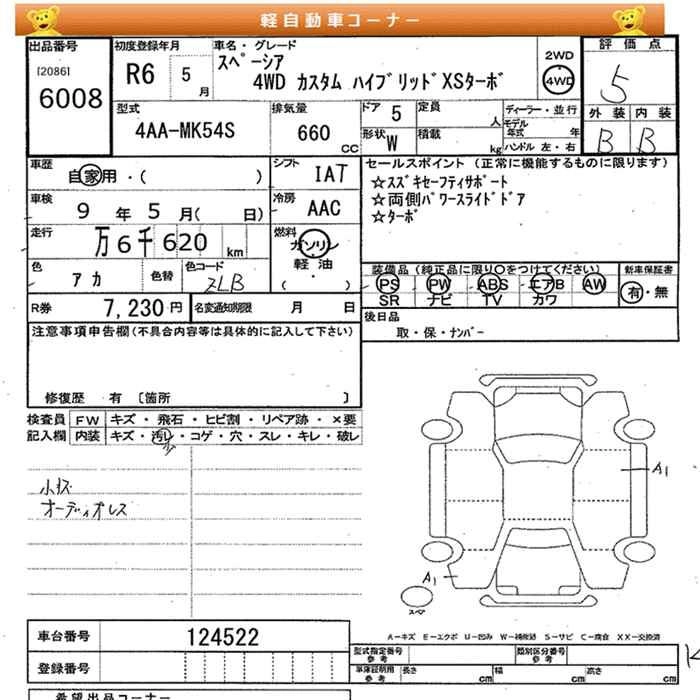 軽自動車コーナー
出品番号
[2086]
6008
初度登録年月
R6 5月
車名・グレード
スペーシア
4WD カスタム ハイブリッドXSターボ
2WD
4WD
評価点
5
外装 内装
B B
型式
4AA-MK54S
排気量
660
CC
ドア 5
形状 W
定員 人
積載 kg
ディーラー・並行
モデル年式 年
ハンドル 左・右
車歴
自家用・( )
シフト
IAT
車検
9年 5月( 日)
冷房
AAC
走行
万6千620 km
燃料
ガソリン
・
軽油
・
( )
色
アカ
色替
色コード
ZLB
R券
7,230円
名変通知期限
月 日
セールスポイント(正常に機能するものに限ります)
☆スズキセーフティサポート
☆両側パワースライドドア
☆ターボ
装備品(純正品に限り○をつけてください)
PS PW ABS エアB AW
SR ナビ TV カワ
新車保証書
有・無
後日品
取・保・ナンバー
注意事項申告欄(不具合内容等は具体的に記入して下さい)
修復歴 有 [箇所 ]
検査員記入欄
FW キズ・飛石・ヒビ割・リペア跡・×要
内装 キズ・汚レ・コゲ・穴・スレ・キレ・破レ
小キズ
オーディオレス
A1
A1
スペア
A-キズ E-エクボ U-凹み W-補修跡 S-サビ C-腐食 XX-交換済
車台番号
124522
登録番号
型式指定番号
参考
類別区分番号
参考
車庫証明用
参考
長さ cm 幅 cm 高さ cm
希望出品コーナー